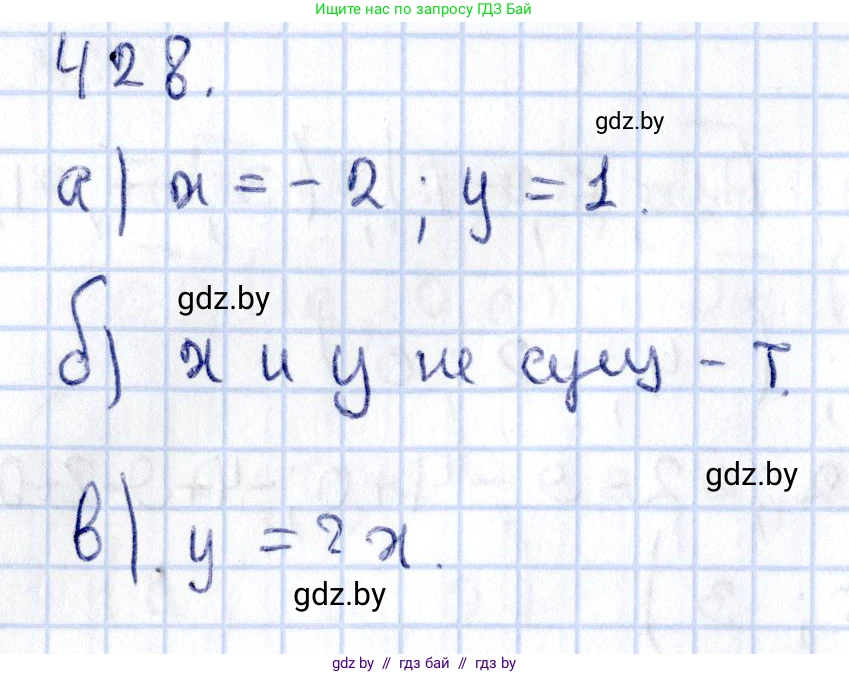 Ищите нас по запросу ГДЗ Бай
428.
gdz.by
а) x = - 2 ; y = 1.
gdz.by
б) x и y не сущ - т.
gdz.by
в) y = 2x.
gdz.by
gdz by // гдз бай // гдз by